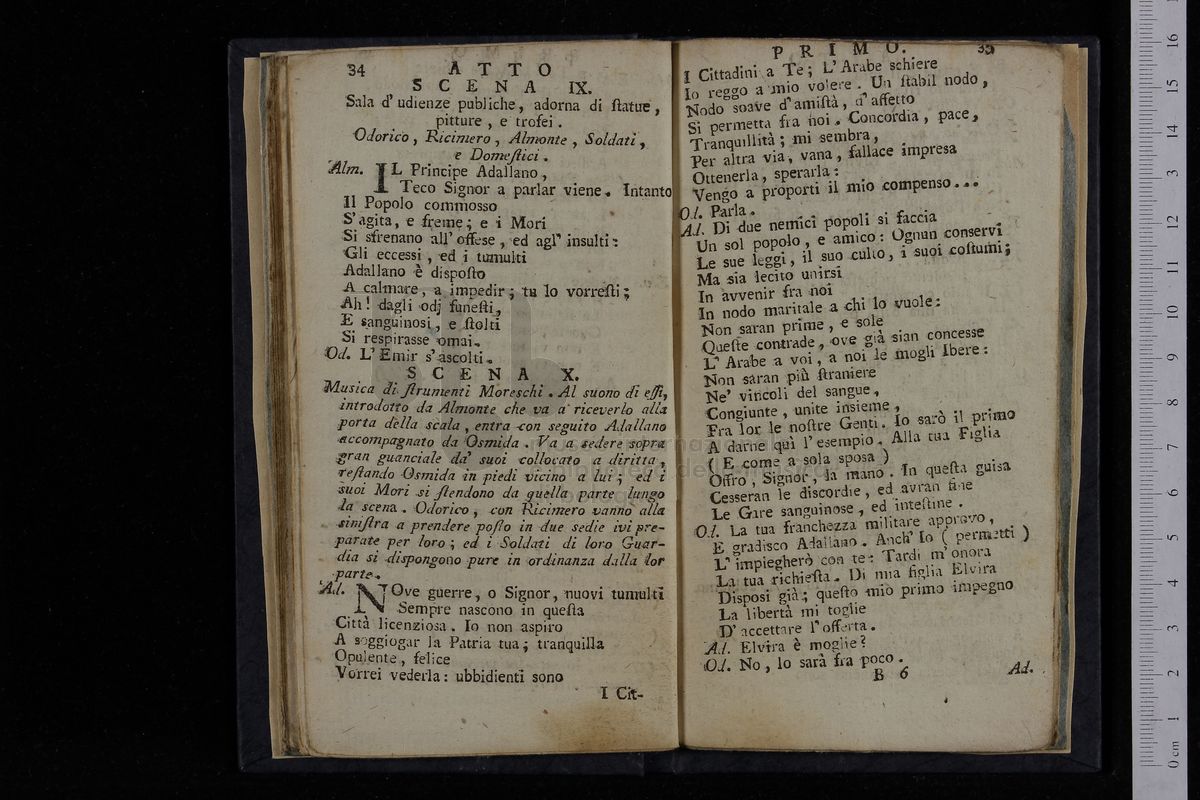 34 ATTO
SCENA IX.
Sala d' udienze publiche, adorna di ſtatue,
pitture, e trofei.
Odorico, Ricimero, Almonte, Soldati,
e Domeſtici.
Alm. IL Principe Adallano,
Teco Signor a parlar viene. Intanto
Il Popolo commosso
S'agita, e freme; e i Mori
Si sfrenano all' offese, ed agl' insulti:
Gli eccessi, ed i tumulti
Adallano è diſpoſto
A calmare, a impedir; tu lo vorreſti;
Ah! dagli odj funeſti,
E sanguinosi, e ſtolti
Si respirasse omai.
Od. L' Emir s'ascolti.
SCENA X.
Musica di ſtrumenti Moreschi. Al suono di eſſi,
introdotto da Almonte che va a riceverlo alla
porta della scala, entra con seguito Adallano
accompagnato da Osmida. Va a sedere sopra
gran guanciale da' suoi collocato a diritta,
reſtando Osmida in piedi vicino a lui; ed i
suoi Mori si ſtendono da quella parte lungo
la scena. Odorico, con Ricimero vanno alla
siniſtra a prendere poſto in due sedie ivi pre-
parate per loro; ed i Soldati di loro Guar-
dia si dispongono pure in ordinanza dalla lor
parte.
Ad. NOve guerre, o Signor, nuovi tumulti
Sempre nascono in queſta
Città licenziosa. Io non aspiro
A soggiogar la Patria tua; tranquilla
Opulente, felice
Vorrei vederla: ubbidienti sono
I Cit-
PRIMO. 35
I Cittadini a Te; L' Arabe schiere
Io reggo a mio volere. Un ſtabil nodo,
Nodo soave d'amiſtà, d'affetto
Si permetta fra noi. Concordia, pace,
Tranquillità; mi sembra,
Per altra via, vana, fallace impresa
Ottenerla, sperarla:
Vengo a proporti il mio compenso...
Od. Parla.
Ad. Di due nemici popoli si faccia
Un sol popolo, e amico: Ognun conservi
Le sue leggi, il suo culto, i suoi coſtumi;
Ma sia lecito unirsi
In avvenir fra noi
In nodo maritale a chi lo vuole:
Non saran prime, e sole
Queſte contrade, ove già sian concesse
L' Arabe a voi, a noi le mogli Ibere:
Non saran più ſtraniere
Ne' vincoli del sangue,
Congiunte, unite insieme,
Fra lor le noſtre Genti. Io sarò il primo
A darne quì l'esempio. Alla tua Figlia
( E come a sola sposa )
Offro, Signor, la mano. In queſta guisa
Cesseran le discordie, ed avran fine
Le Gare sanguinose, ed inteſtine.
Od. La tua franchezza militare approvo,
E gradisco Adallano. Anch' Io ( permetti )
L' impiegherò con te: Tardi m'onora
La tua richieſta. Di mia figlia Elvira
Disposi già; queſto mio primo impegno
La libertà mi toglie
D' accettare l'offerta.
Ad. Elvira è moglie?
Od. No, lo sarà fra poco.
B 6 Ad.